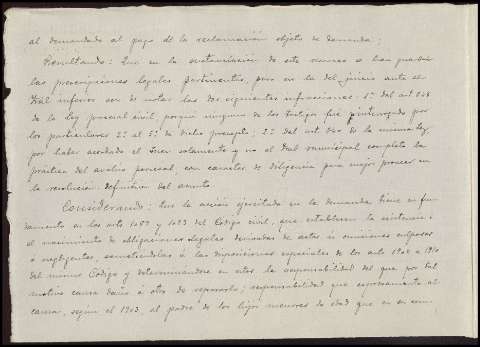 al demandado al pago de la reclamación objeto de demanda;
Resultando: Que en la sustanciación de este recurso se han guardado
las prescripciones legales pertinentes, pero en la del juicio ante el
Tral inferior son de notar las dos siguientes infracciones: 1ª del art. 648
de la ley procesal civil, porque ninguno de los testigos fué interrogado por
los particulares 2º al 5º de dicho precepto; 2ª del art. de la misma ley,
por haber acordado el Juez solamente y no el Tral municipal completo la
práctica del avalúo pericial, con carácter de diligencia para mejor proveer en
la resolución definitiva del asunto.
Considerando: Que la acción ejercitada en la demanda tiene su fun-
damento en los arts 1089 y 1093 del Código civil, que establecen la existencia ó
el nacimiento de obligaciones legales derivadas de actos ú omisiones culposas
ó negligentes, sometiéndolas á las disposiciones especiales de los arts 1902 a 1910
del mismo Código y determinándose en estos la responsabilidad del que por tal
motivo causa daño á otro de repararlo; responsabilidad que expresamente al-
canza, según el 1903, al padre de los hijos menores de edad que en su com-